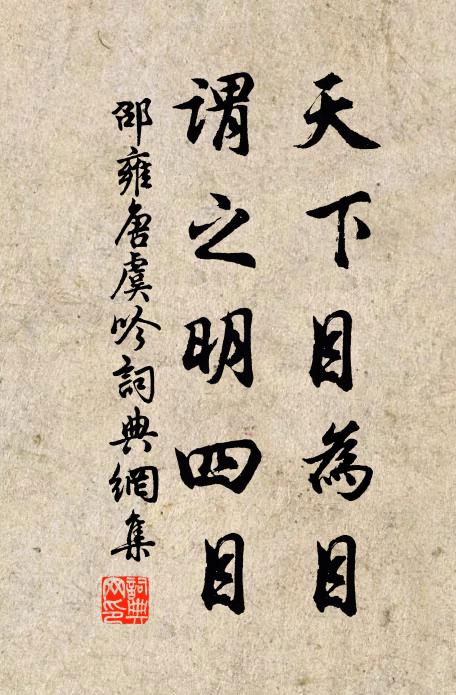 天下目為目
謂之明四目
邵雍唐虞吟詞典網集
詞典网印